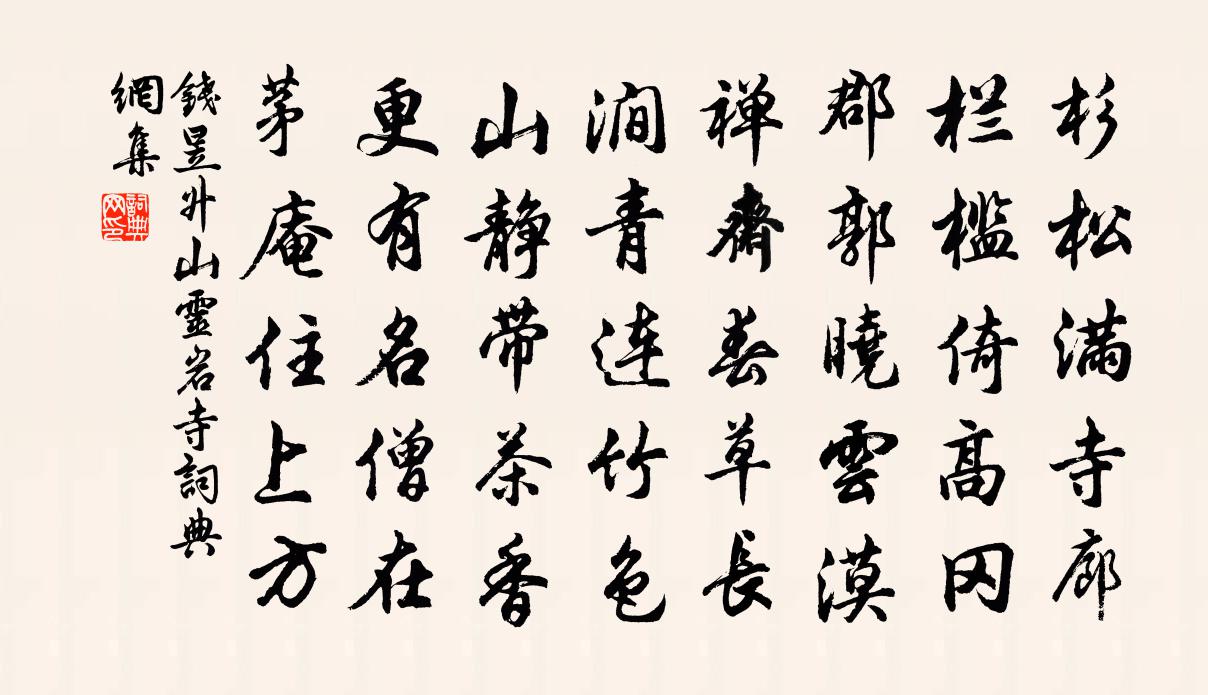 杉松满寺廊
栏槛倚高冈
郡郭曉雲漠
禅齋春草長
澗青连竹色
山静带茶香
更有名僧在
茅庵住上方
錢昱升山靈岩寺詞典
網集
詞典
网印